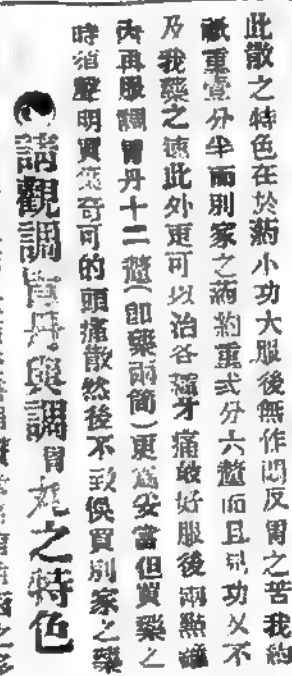 此散之特色在於葯小功大服後無作悶反胃之苦我葯
祇重壹分半而別家之葯約重弍分六釐而且見功又不
及我藥之速此外更可以治各種牙痛最好服後兩點鐘
內再服調胃丹十二釐(即藥兩筒)更爲妥當但買藥之
時須聲明買集奇可的頭痛散然後不致悞買別家之藥
請觀調胃丹與調胃丸之特色